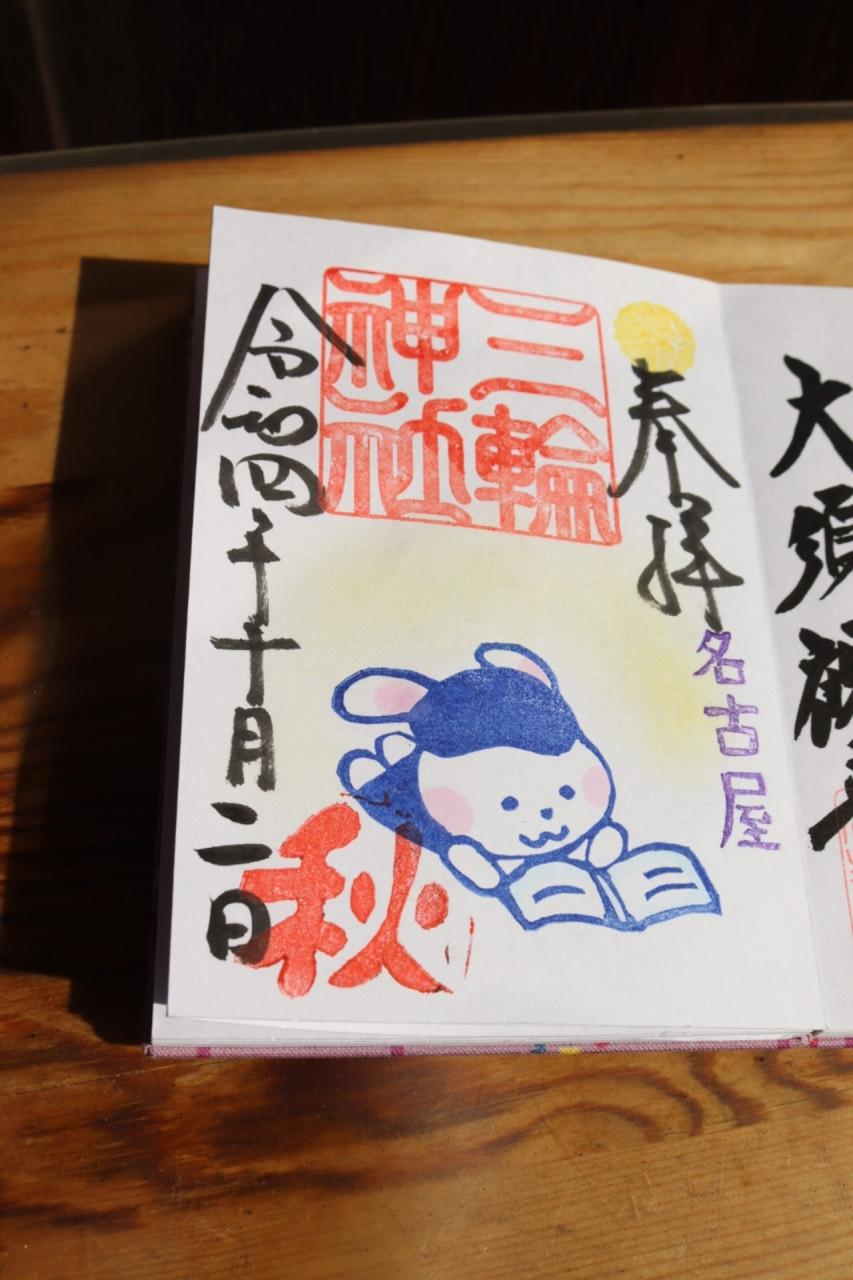 大須観音
奉拝
名古屋
三輪
神社
秋
令和四年十月二日